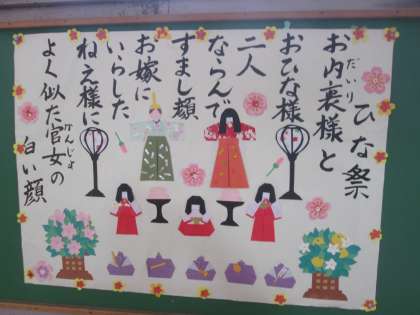 ひな祭
お内裏様と
だいり
おひな様
二人
ならんで
すまし顔
お嫁に
いらした
ねえ様に
よく似た官女の
かんじょ
白い顔